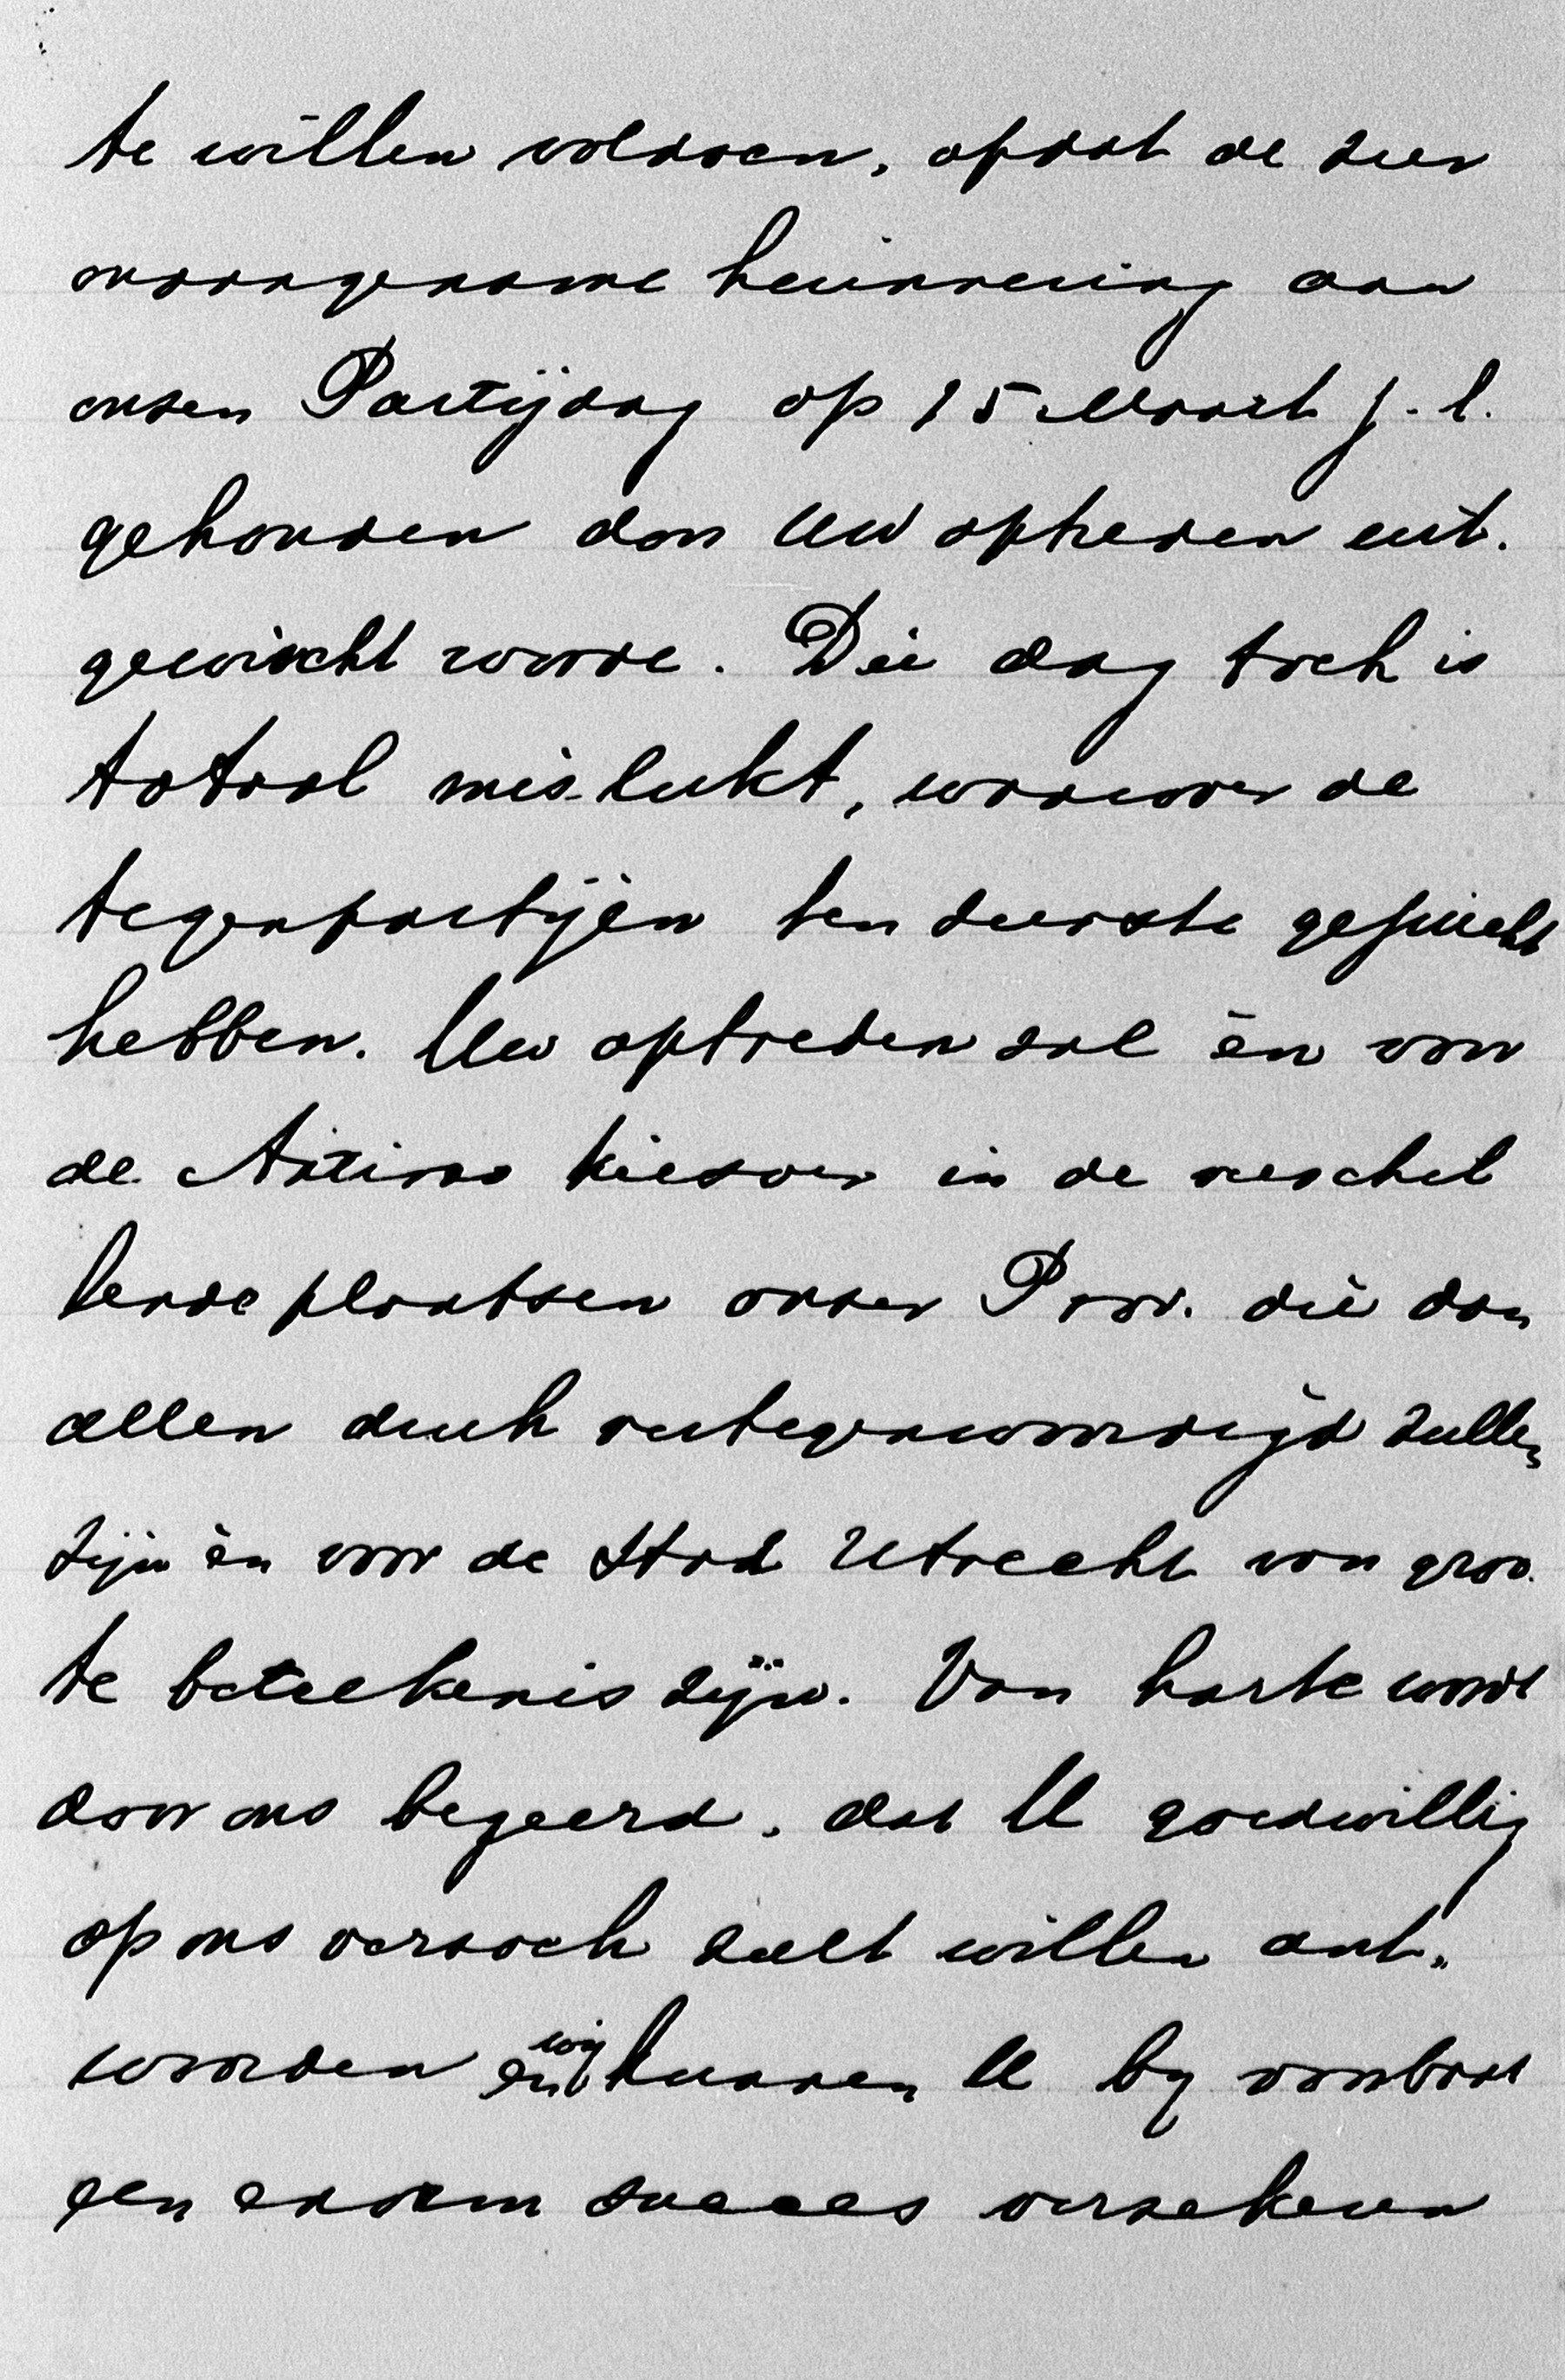 te willen voldoen, opdat de zeer
onaangename herinnering aan
onzen Partijdag op 15 Maart j.l.
gehouden door Uw optreden uit.
gewischt worde. Die dag toch is
totaal mislukt, waarover de
tegenpartijën ten zeerste gejuicht
hebben. Uw optreden zal èn voor
de Antirev kiezers in de verschil
lende plaatsen onzer Prov. die dan
allen druk vertegenwoordigd zullen
zijn èn voor de Stad Utrecht van groo.
te beteekenis zijn. Van harte wordt
door ons begeerd, dat U goedwillig
op ons verzoek zult willen ant„
woorden en wij kunnen U bij voorbaat
een enorm succes verzekeren